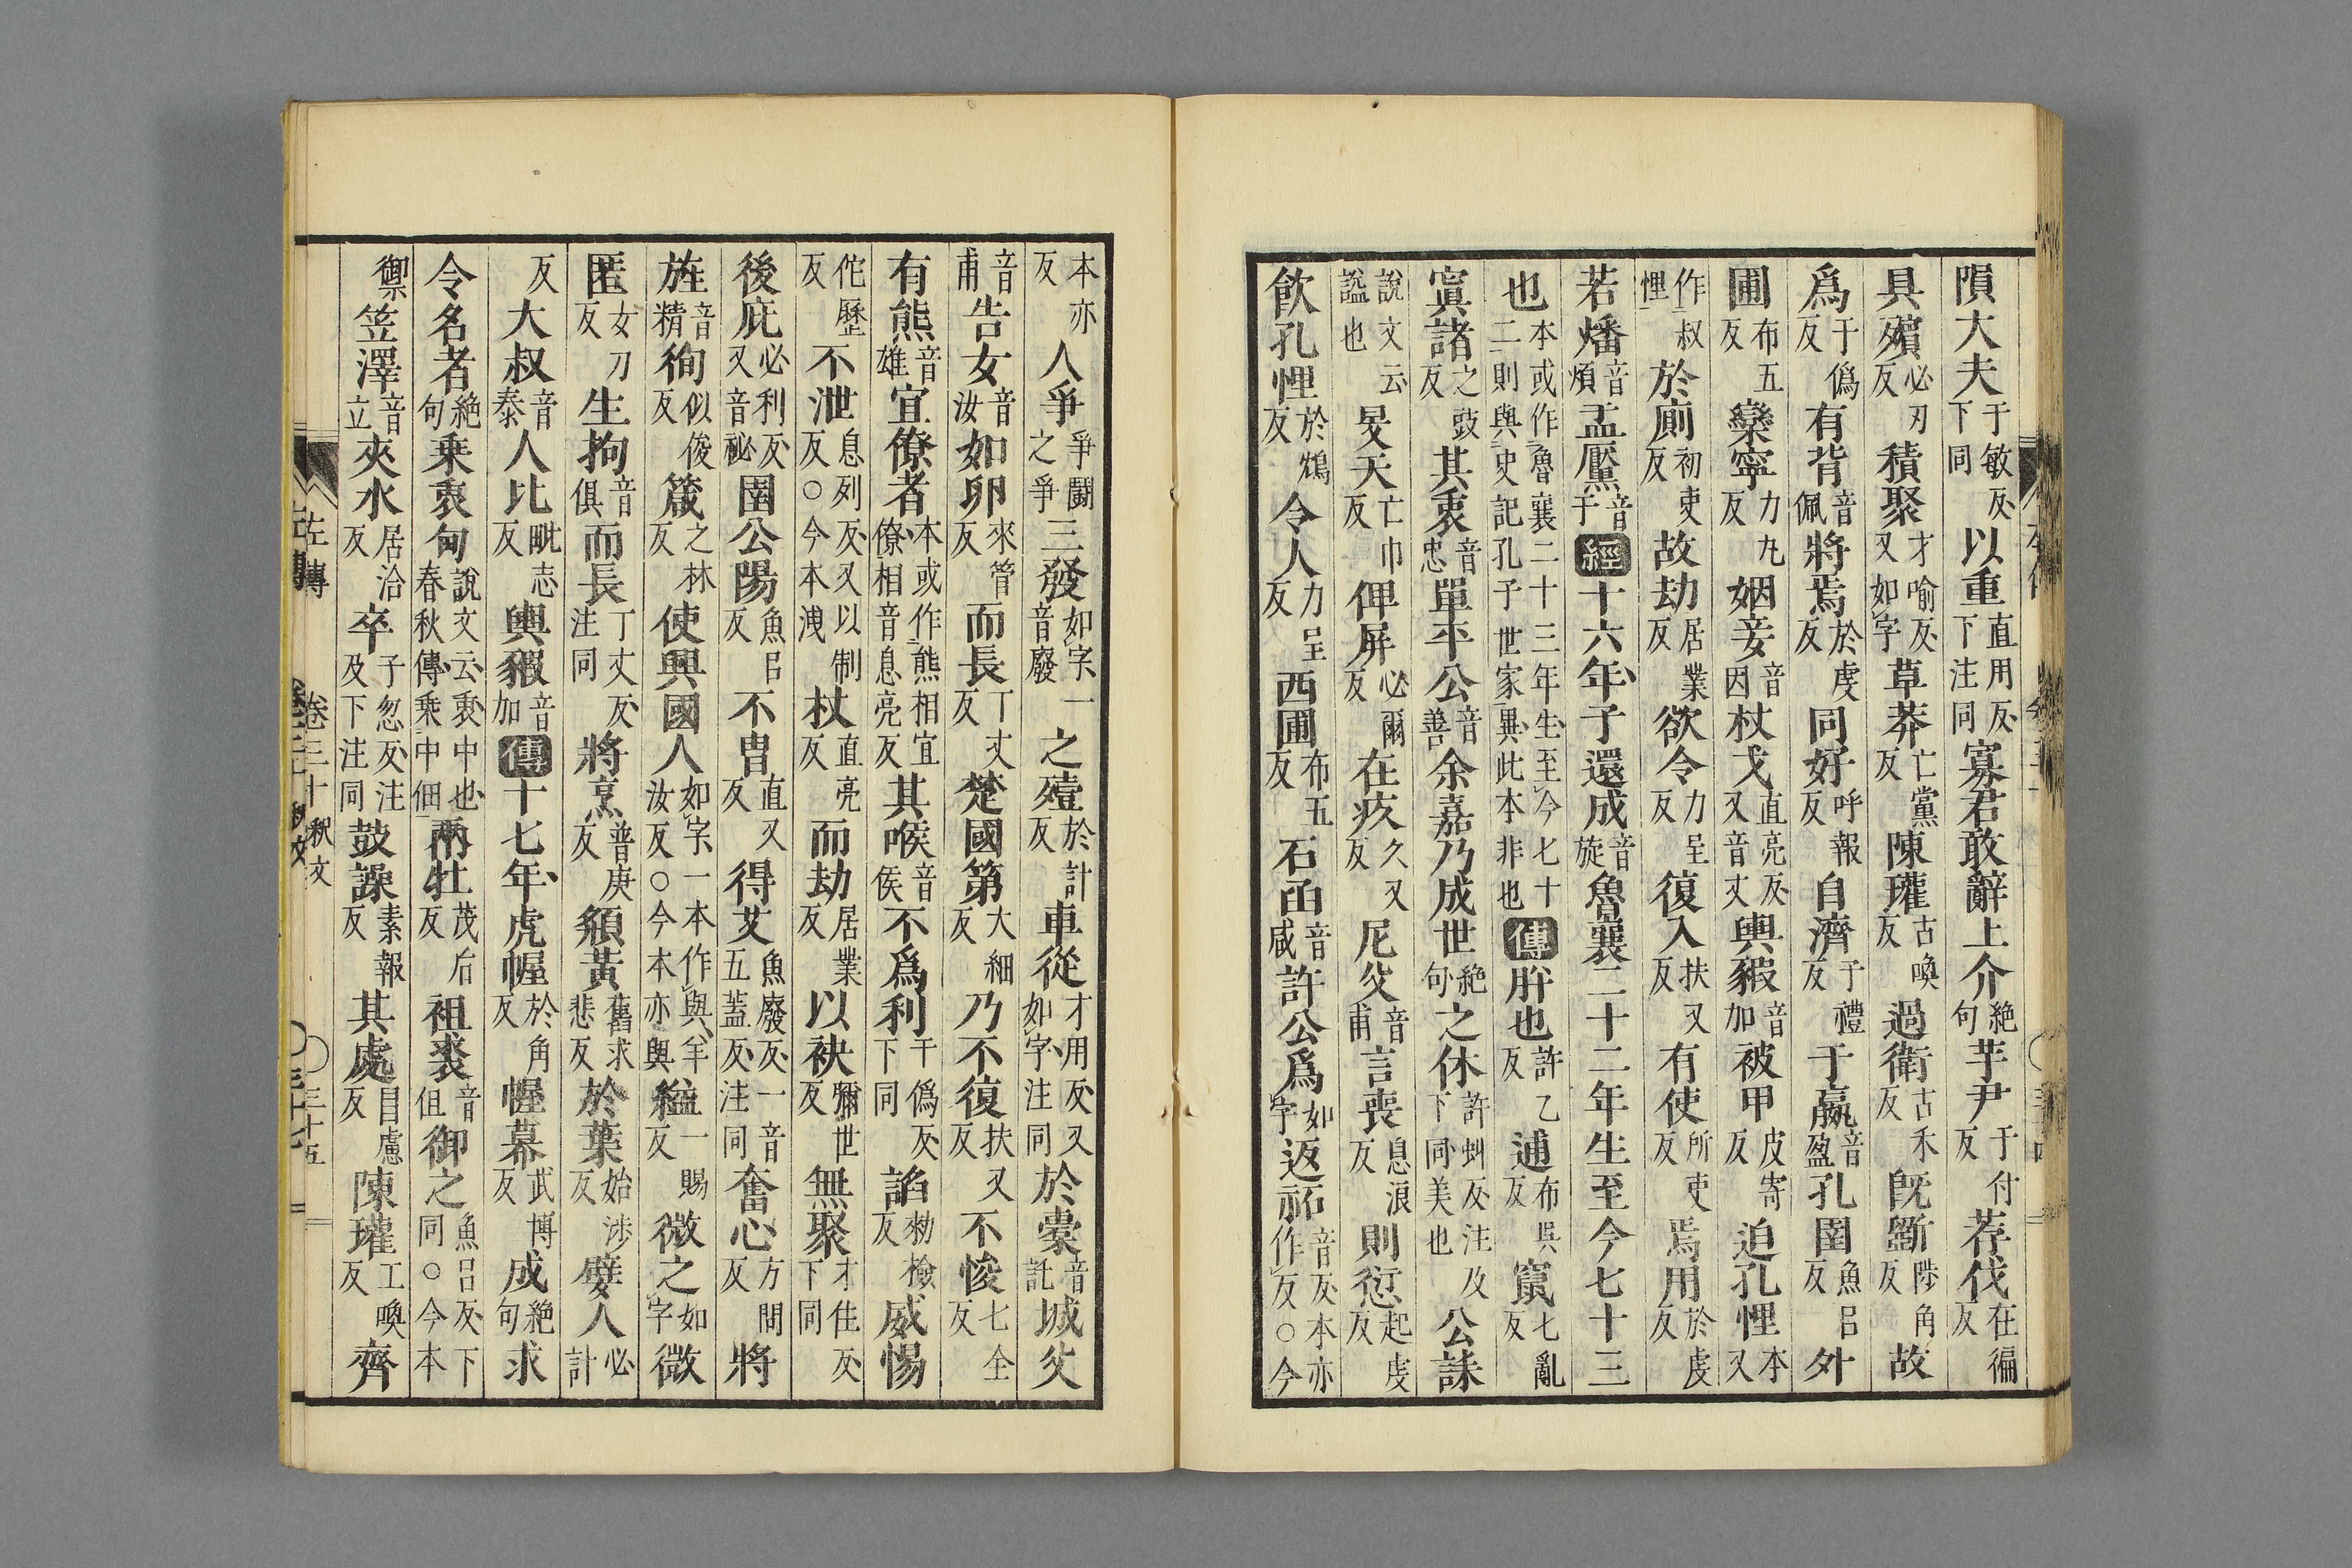 隕大夫于敏反下同以重直用反下注同寡君敢辭上介絶句芋尹于付反荐伐在徧反
具殯必刃反積聚才喻反又如字草莽亡黨反陳瓘古喚反過衛古禾反既斵陟角反故
爲于僞反有背音佩將焉於虔反同好呼報反自濟子禮反于嬴音盈孔圉魚呂反外
圃布五反欒寧力九反姻妾音因杖戈直亮反又音丈輿豭音加被甲皮寄反迫孔悝本又
作叔悝於廁初吏反故劫居業反欲令力呈反復入扶又反有使所吏反焉用於虔反
若燔音煩孟黶音于經十六年子還成音旋魯襄二十二年生至今七十三
也本或作魯襄二十三年生至今七十二則與史記孔子世家異此本非也傳肸也許乙反逋布吳反竄七亂反
寘諸之豉反其衷音忠單平公音善余嘉乃成世絶句之休許虯反注及下同美也公誄
說文云諡也旻天亡巾反俾屏必爾反在疚久又反尼父音甫言喪息浪反則愆起虔反
飲孔悝於鴆反令人力呈反西圃布五反石函音咸許公爲如字返祏音反本亦作反○今
本亦反人爭爭鬬之爭三發如字一音廢之殪於計反車從才用反又如字注同於橐音託城父
音甫告女音汝如卵來管反而長丁丈反楚國第大細反乃不復扶又反不悛七全反
有熊音雄宜僚者本或作熊相宜僚相音息亮反其喉音侯不爲利于僞反下同諂勑檢反威惕
佗歷反不泄息列反又以制反○今本洩杖直亮反而劫居業反以袂彌世反無聚才住反下同
後庇必利反又音祕圉公陽魚呂反不胄直又反得艾魚廢反一音五蓋反注同奮心方問反將
旌音精徇似俊反箴之林反使與國人如字一本作與羊汝反○今本亦與縊一賜反微之如字微
匿女力反生拘音俱而長丁丈反注同將烹普庚反頯黃舊求悲反於葉始涉反嬖人必計
反大叔音泰人比毗志反輿豭音加傳十七年虎幄於角反幄幕武博反成絶句求
令名者絶句乗衷甸說文云衷中也春秋傳乗中佃兩牡茂后反袒裘音但御之魚呂反下同○今本
禦笠澤音立夾水居洽反卒子忽反注及下注同鼓譟素報反其處昌慮反陳瓘工喚反齊
左傳 卷三十 釈文 三十五